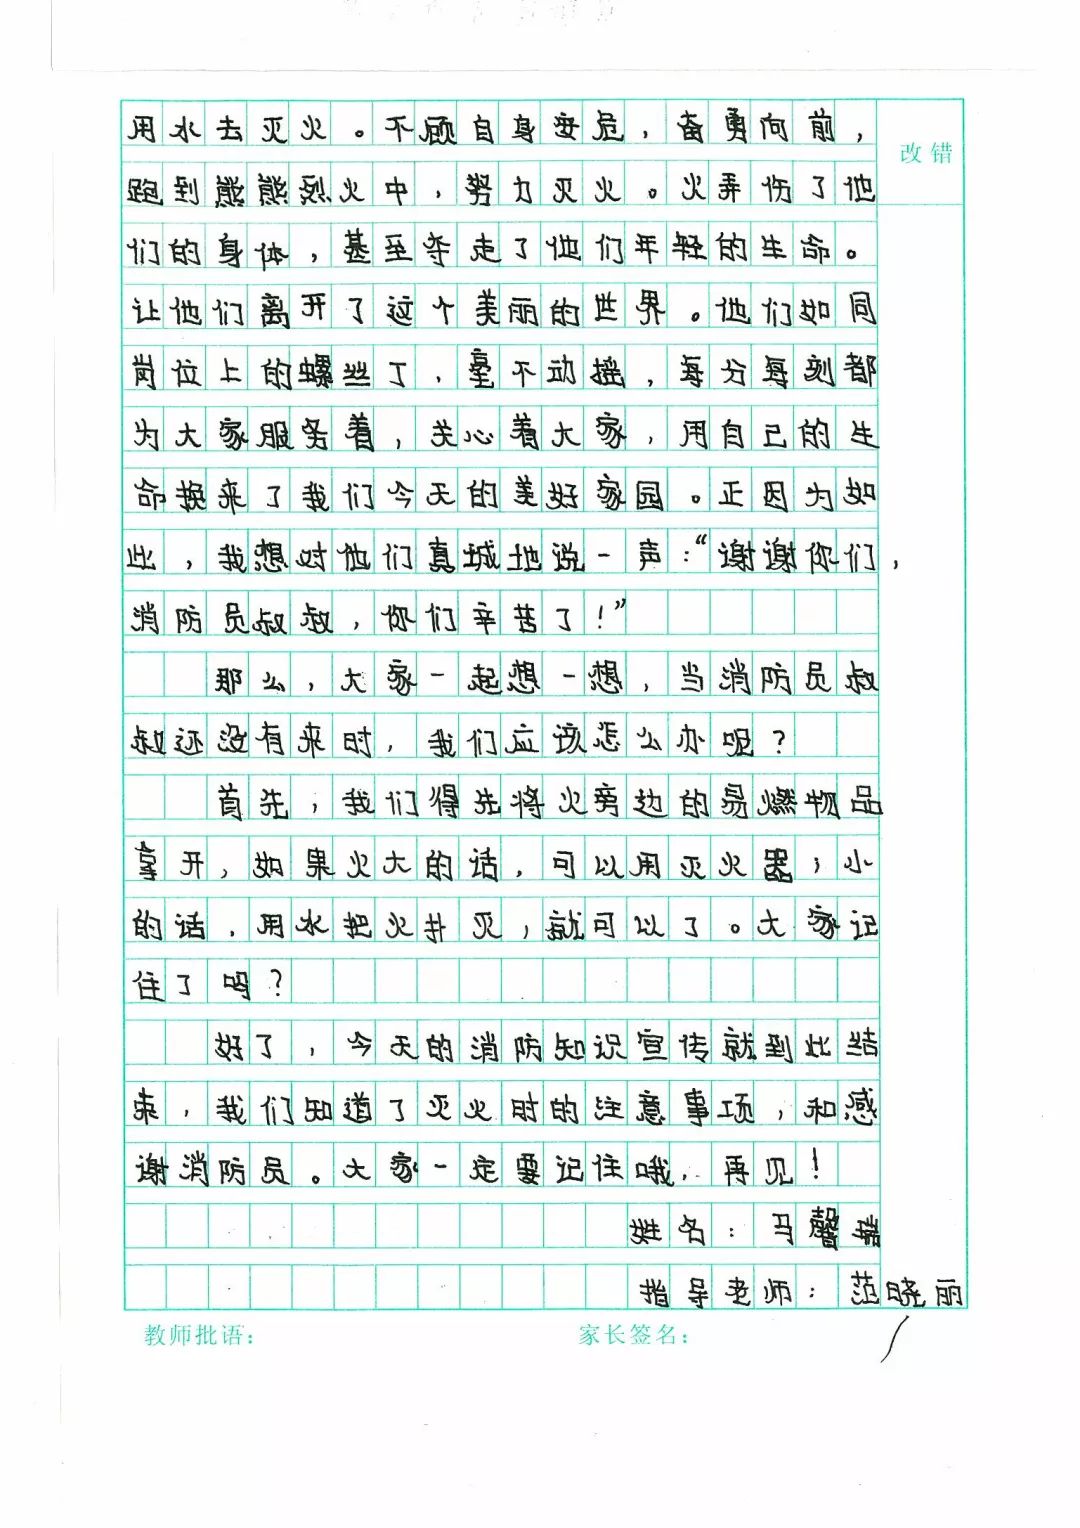 用水去灭火。不顾自身安危，奋勇向前，
改错
跑到熊熊烈火中，努力灭火。火弄伤了他
们的身体，甚至夺走了他们年轻的生命。
让他们离开了这个美丽的世界。他们如同
岗位上的螺丝丁，毫不动摇，每分每刻都
为大家服务着，关心着大家，用自己的生
命换来了我们今天的美好家园。正因为如
此，我想对他们真城地说一声：“谢谢你们，
消防员叔叔，你们辛苦了！”
那么，大家一起想一想，当消防员叔
叔还没有来时，我们应该怎么办呢？
首先，我们得先将火旁边的易燃物品
拿开，如果火大的话，可以用灭火器；小
的话，用水把火扑灭，就可以了。大家记
住了吗？
好了，今天的消防知识宣传就到此结
束，我们知道了灭火时的注意事项，和感
谢消防员。大家一定要记住哦，再见！
姓名：马馨瑞
指导老师：范晓丽
教师批语：
家长签名：